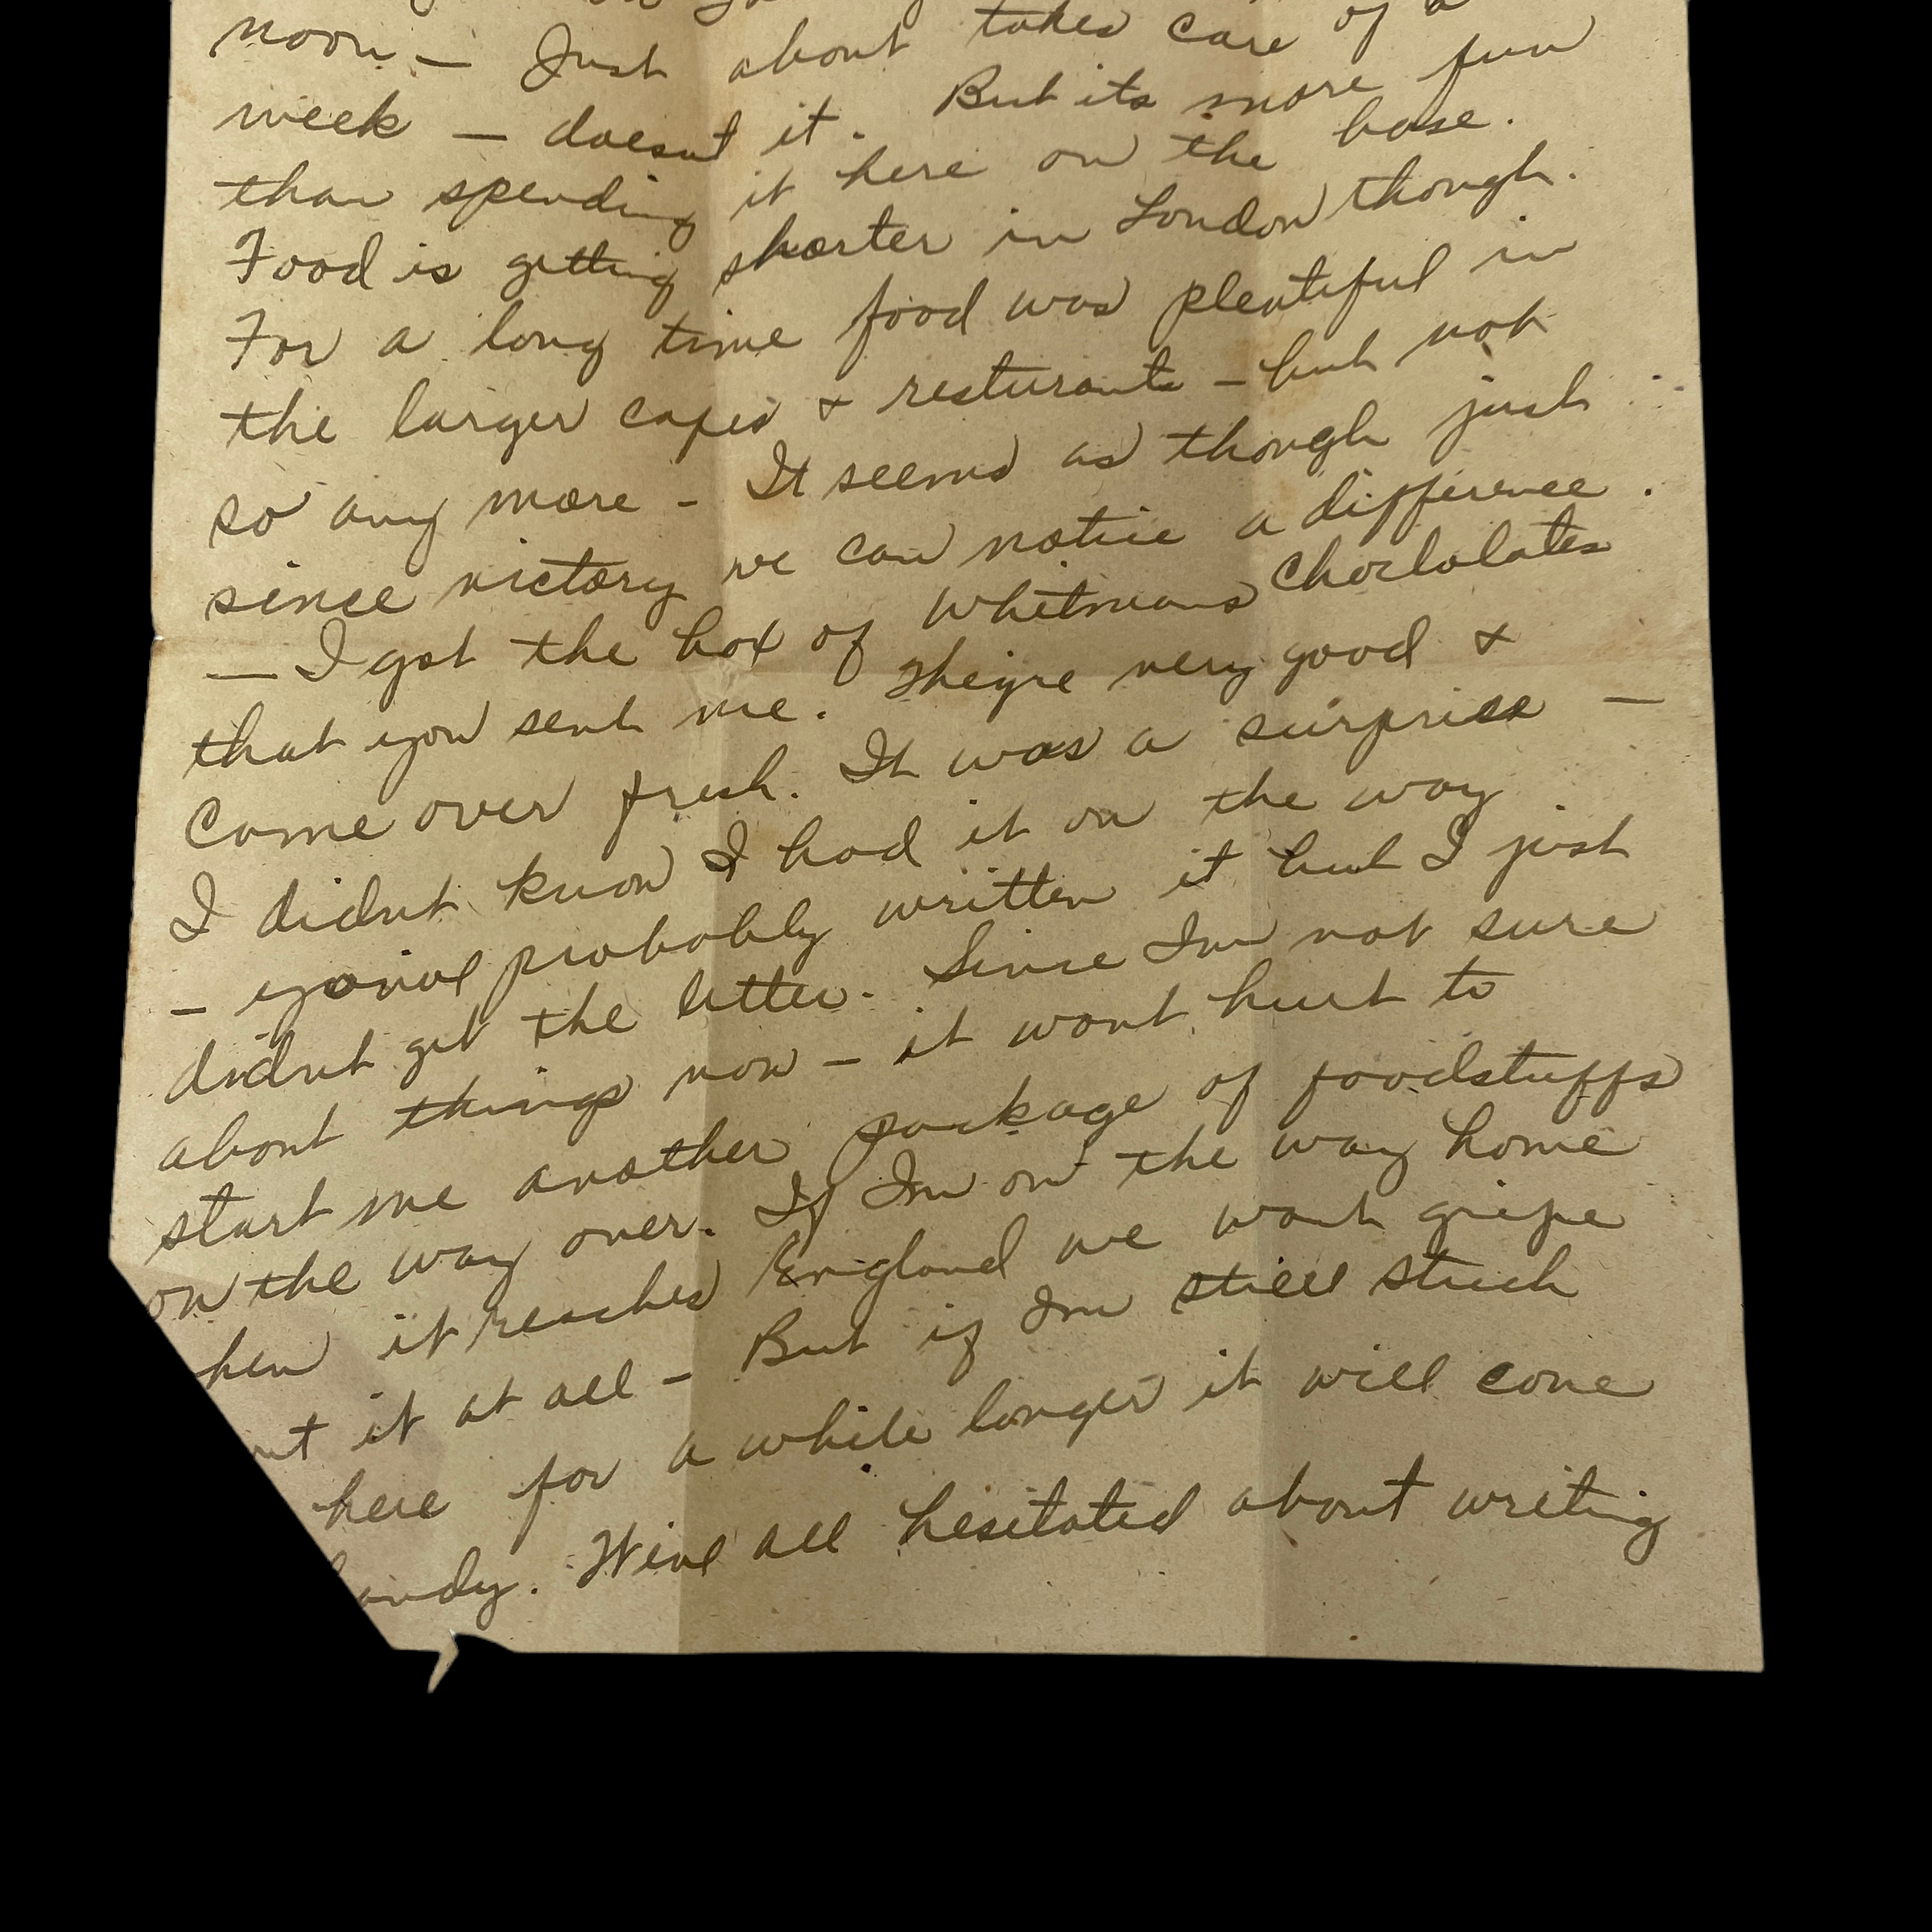 noon — Just about takes care of a
week — doesnt it. But its more fun
than spending it here on the base.
Food is getting shorter in London though.
For a long time food was plentiful in
the larger cafes & resturants – but not
so any more – It seems as though just
since victory we can notice a difference.
— I got the box of Whitmans Choclolates
that you sent me. Theyre very good &
Come over fresh. It was a surprise —
I didnt know I had it on the way
– youve probably written it but I just
didnt get the letter. Since Im not sure
about things now – it wont hurt to
start me another package of foodstuffs
on the way over. If Im on the way home
hen it reaches England we wont gripe
ut it at all – But if Im still stuck
here for a while longer it will come
andy. Weve all hesitated about writing